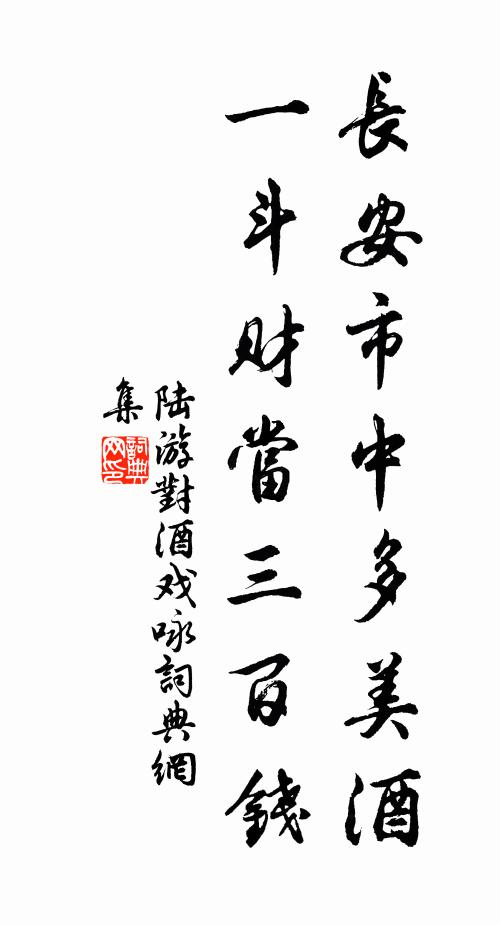 長安市中多美酒
一斗財當三百錢
陆游對酒戏咏詞典網
集
詞典網印